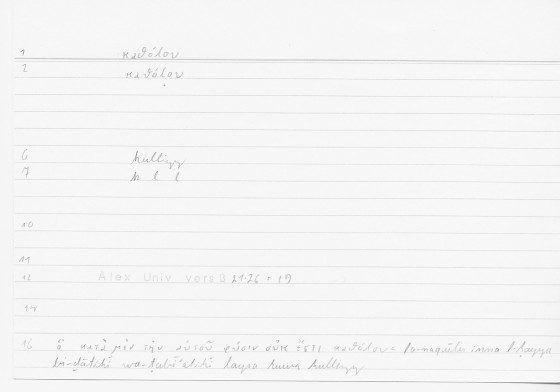 1 καθόλου
2 καθόλου
6 kulliyy
7 k l l
10
11
12 Alex Univ vers B 21-26 = 19
14
16 ὃ κατὰ μὲν τὴν αὑτοῦ φύσιν οὐκ ἔστι καθόλου = fa-naqūlu inna l-ḥayya
bi-ḏātihī wa-ṭabīʿatihī laysa huwa kulliyy